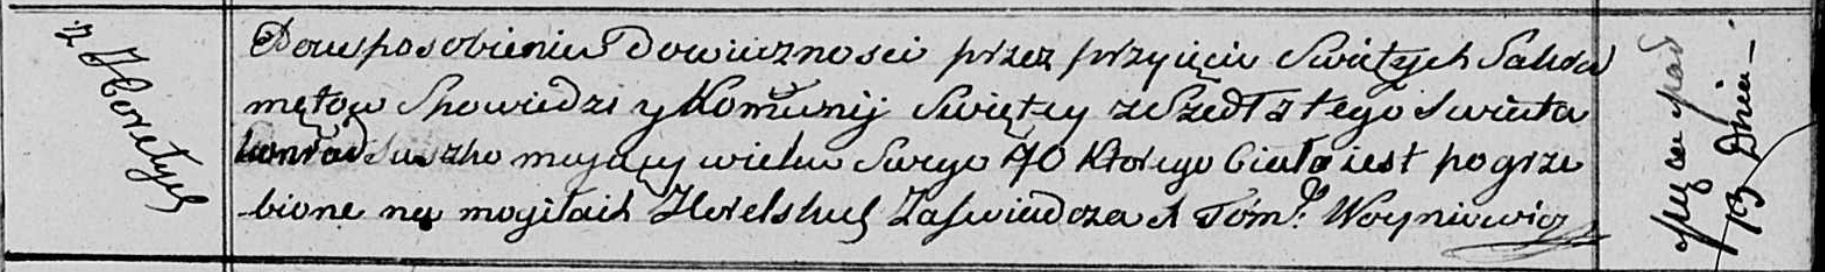 z Horełych
Dousposobieniu Dowieczności przez przyięciu Swiętych Sakra
mętow Spowiedzi y Komunij Swiętey zeszedł z tego swiata
Konrad Suszko maiący wieku swego 70 Którego Ciało iest pogrze
bione na mogiłach Zaswiadcza X Tom: Woyniewicz
Dnia